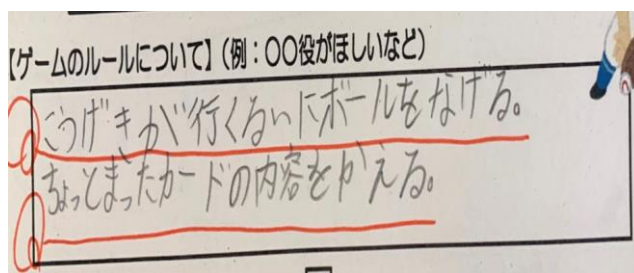 【ゲームのルールについて】(例：〇〇役がほしいなど)
こうげきが行くるいにボールをなげる。
ちょっとまったカードの内容をかえる。